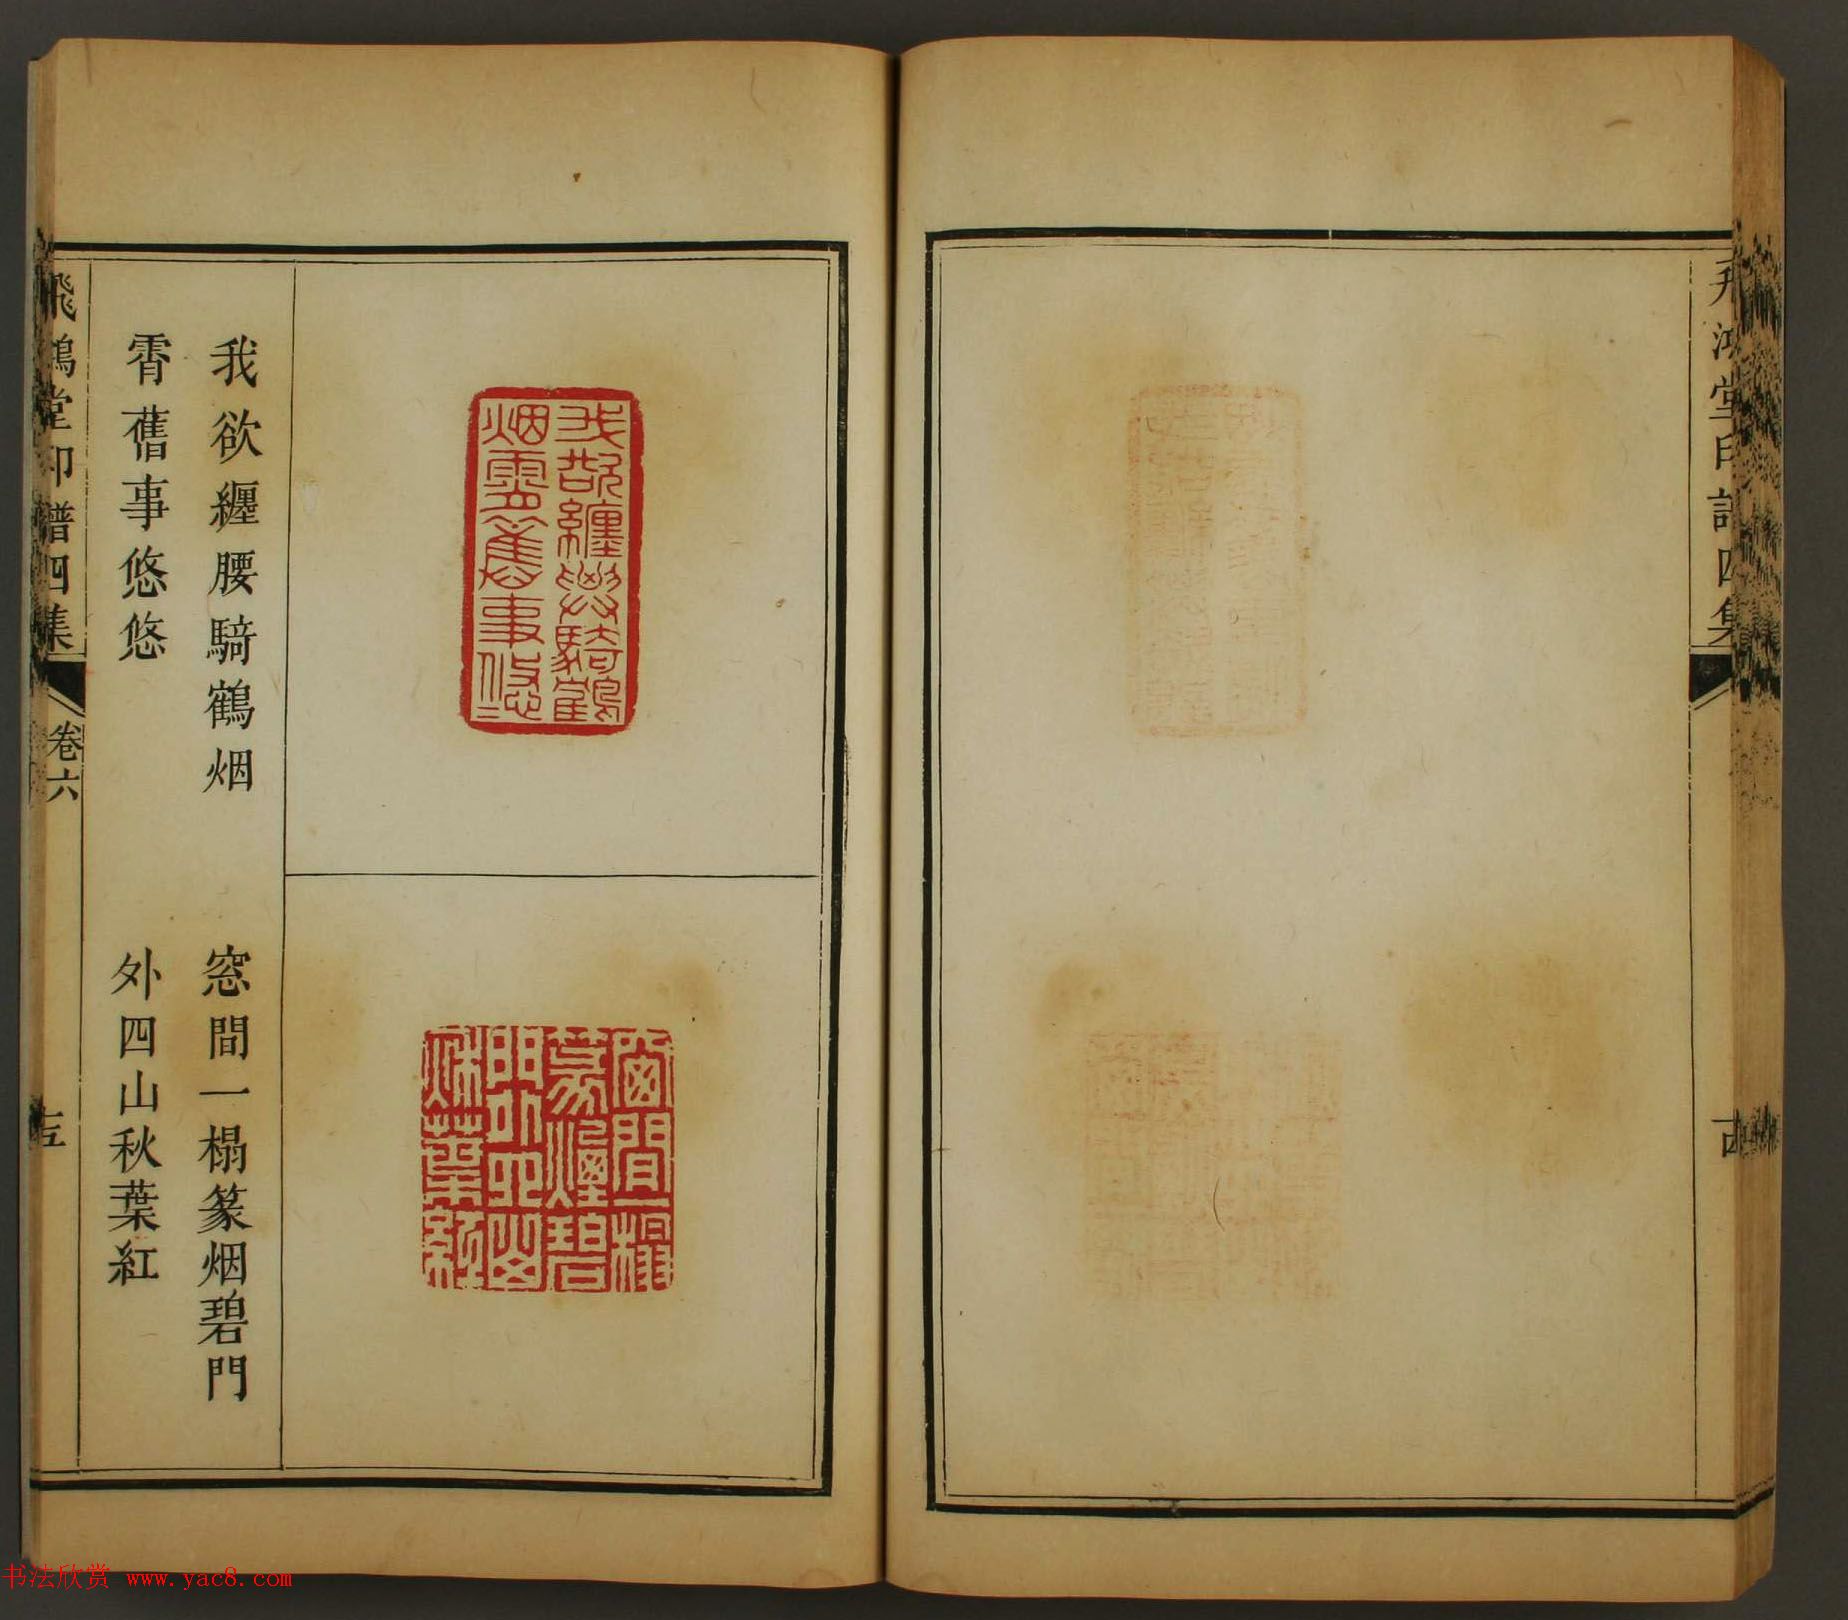 飛鴻堂印譜四集
我欲纏腰騎鶴烟
霄舊事悠悠
窓間一榻篆烟碧門
外四山秋葉紅
飛鴻堂印譜四集
卷六
我欲纏腰騎鶴
烟霄舊事悠〻
窗間一榻
篆煙碧
門外四山
秋葉紅
书法欣赏 www.yac8.com